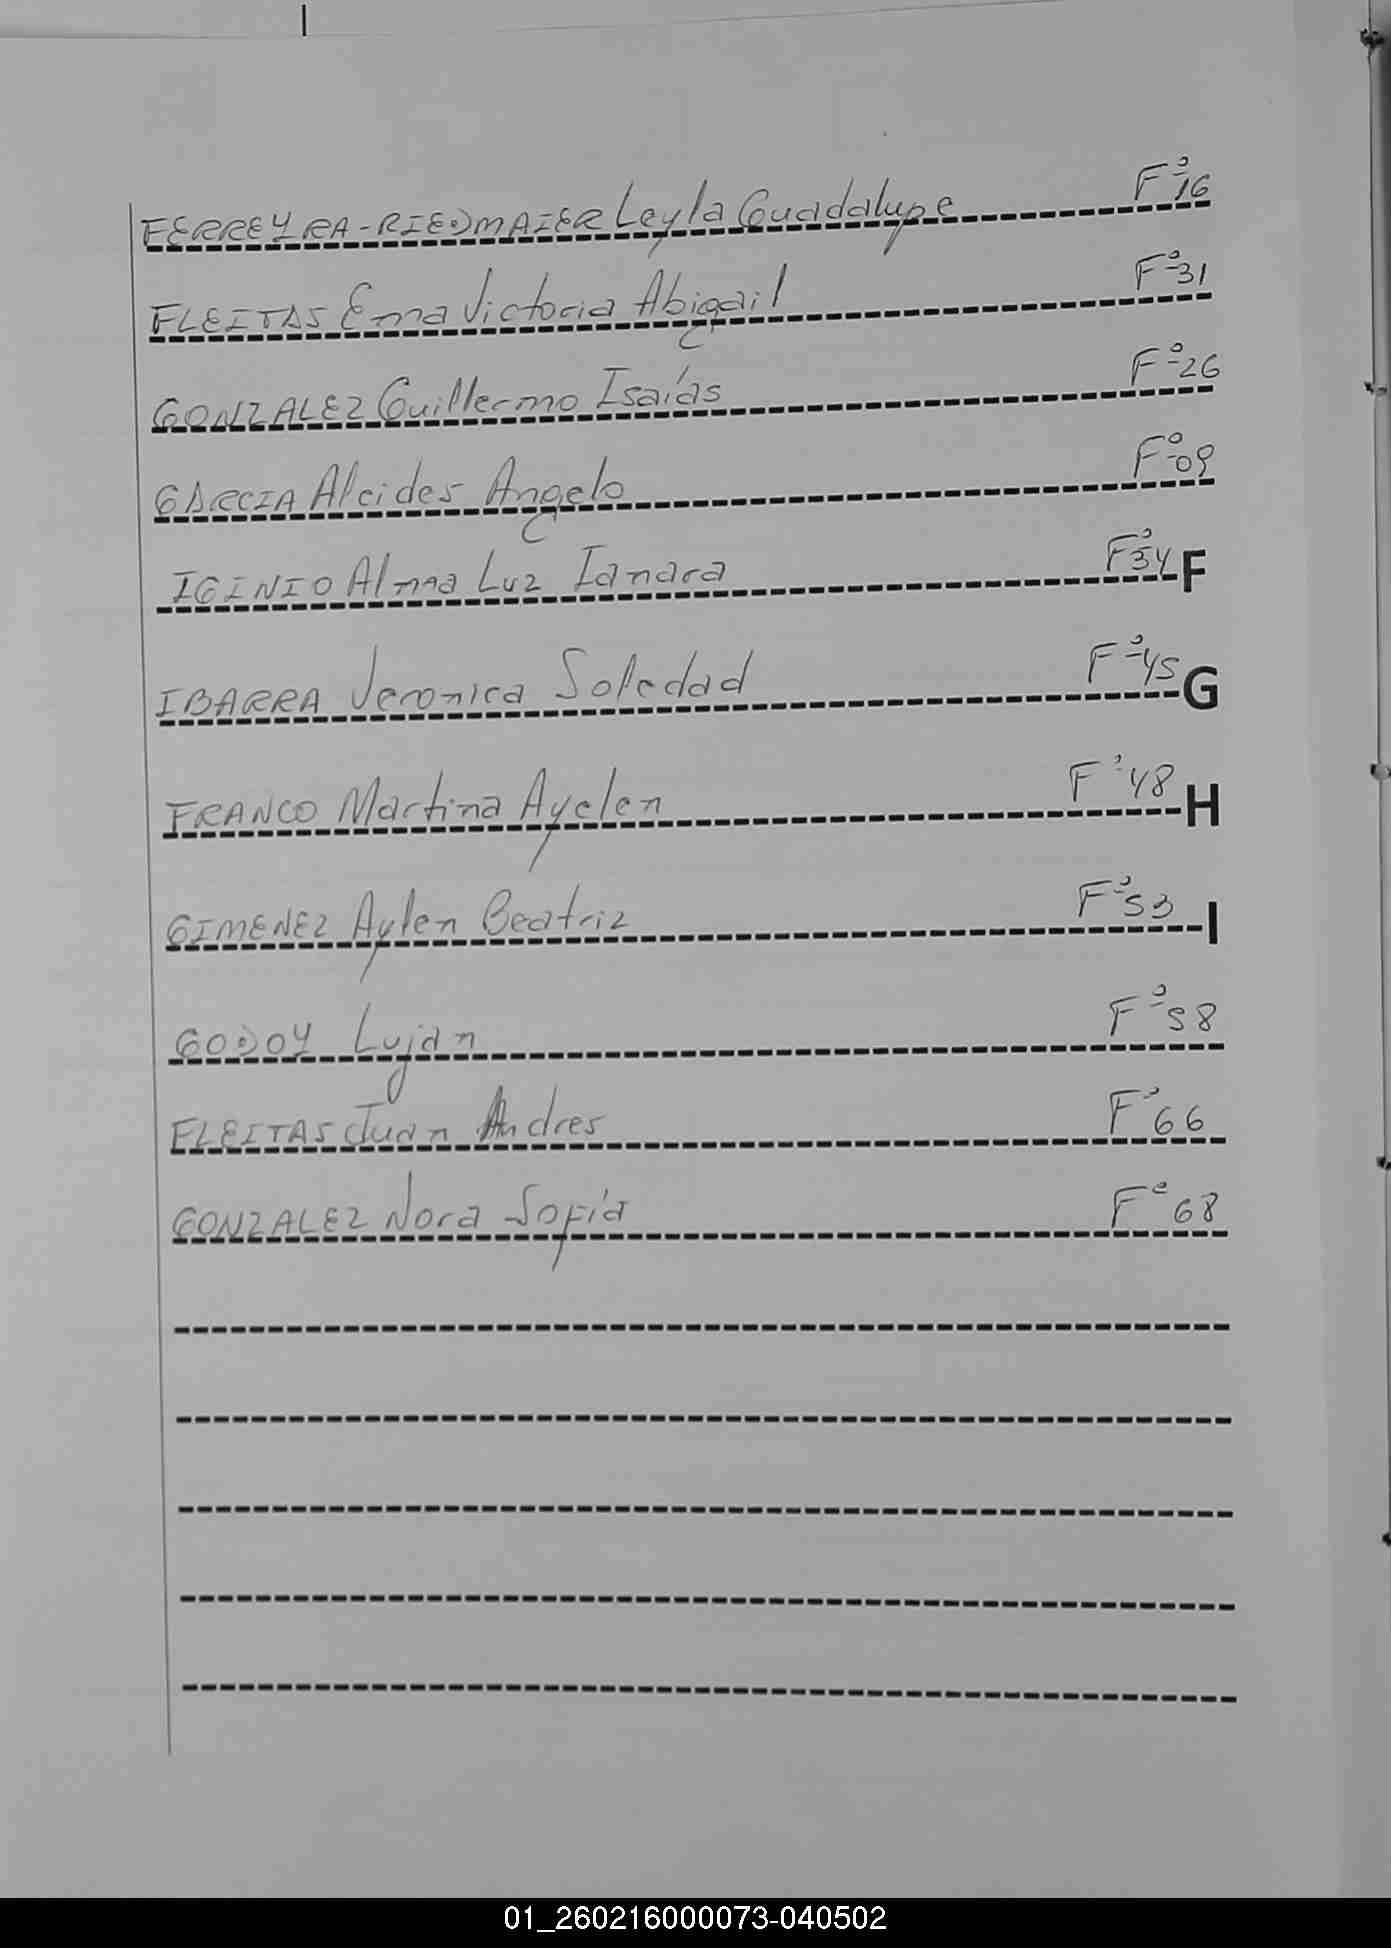 FERREYRA-RIEDMAIER Leyla Guadalupe F° 16
FLEITAS Ema Victoria Abigail F° 31
GONZALEZ Guillermo Isaías F° 26
GARCIA Alcides Angelo F° 09
IGINIO Alma Luz Ianara F° 34 F
IBARRA Veronica Soledad F° 45 G
FRANCO Martina Ayelen F° 48 H
GIMENEZ Aylen Beatriz F° 53 I
GODOY Lujan F° 58
FLEITAS Juan Andres F° 66
GONZALEZ Nora Sofía F° 68
01_260216000073-040502